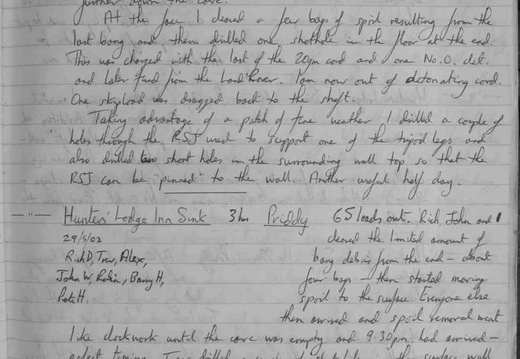 further down the cave.
At the face I cleared a few bags of spoil resulting from the
last bang and then drilled one shothole in the floor at the end.
This was charged with the last of the 20gm cord and one No. 0. det.
and later fired from the Land Rover. I am now out of detonating cord.
One skipload was dragged back to the shaft.
Taking advantage of a patch of fine weather I drilled a couple of
holes through the RSJ used to support one of the tripod legs and
also drilled two short holes in the surrounding wall top so that the
RSJ can be "pinned" to the wall. Another useful half day.
—"— Hunters' Lodge Inn Sink 3 hrs Priddy 65 loads out. Rich, John and I
29/5/02 cleared the limited amount of
Rich D, Trev, Alex, bang debris from the end - about
John W, Robin, Barry H, four bags - then started moving
Pete H. spoil to the surface. Everyone else
then arrived and spoil removal went
like clockwork until the cave was empty and 9.30pm had arrived -
perfect timing. Trev drilled a